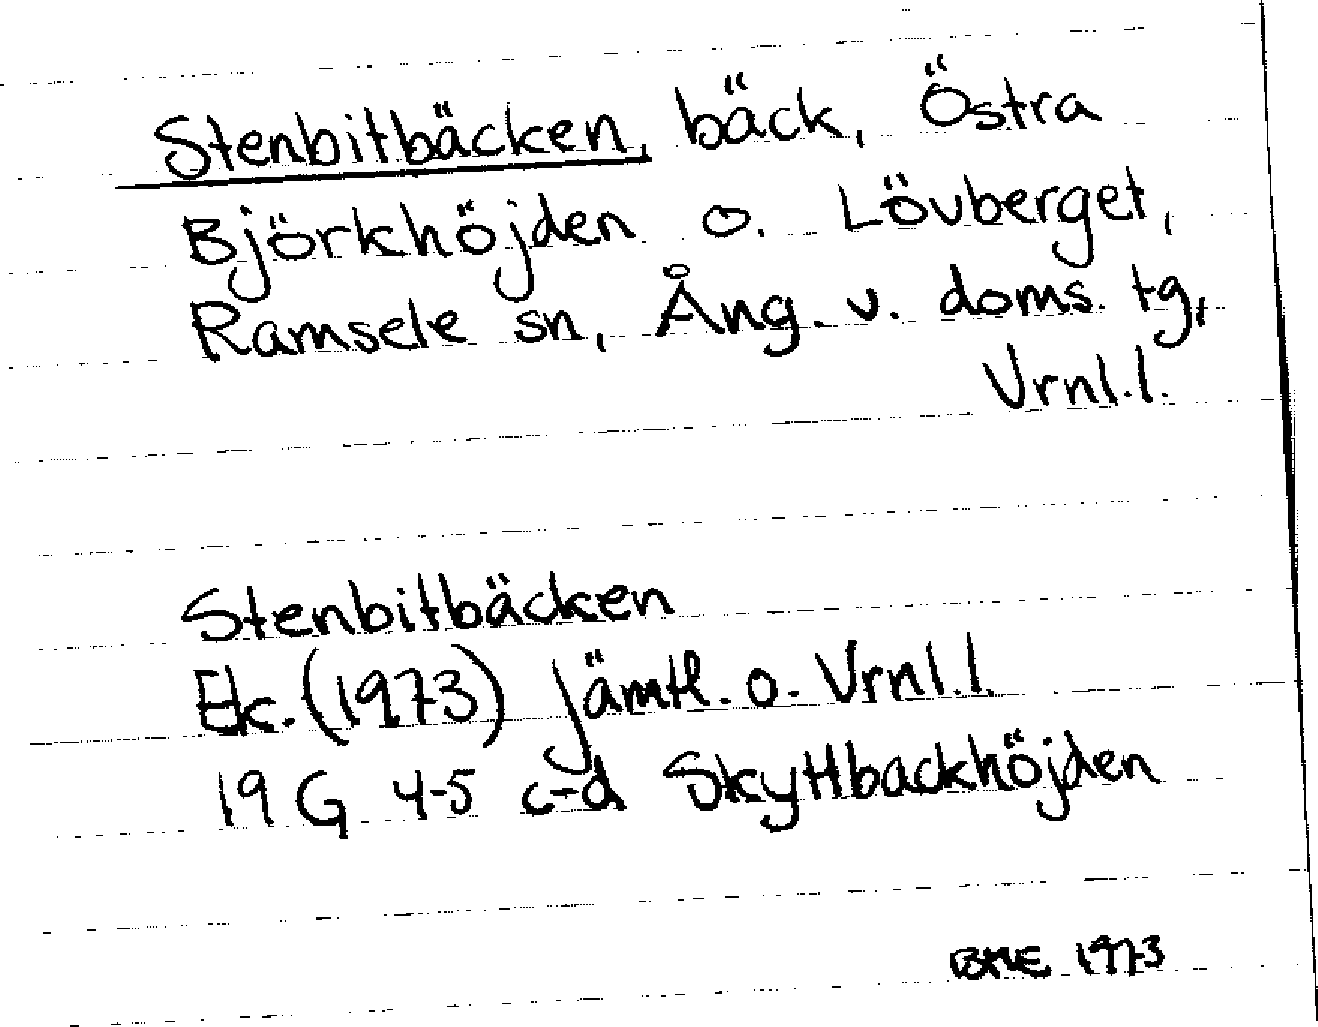 Stenbitbäcken, bäck, Östra
Björkhöjden o. Lövberget,
Ramsele sn, Ång. v. doms. tg,
Vrnl.l.
Stenbitbäcken
Ek. (1973) Jämtl. o. Vrnl.l.
19 G 4-5 c-d Skyttbackhöjden
1973